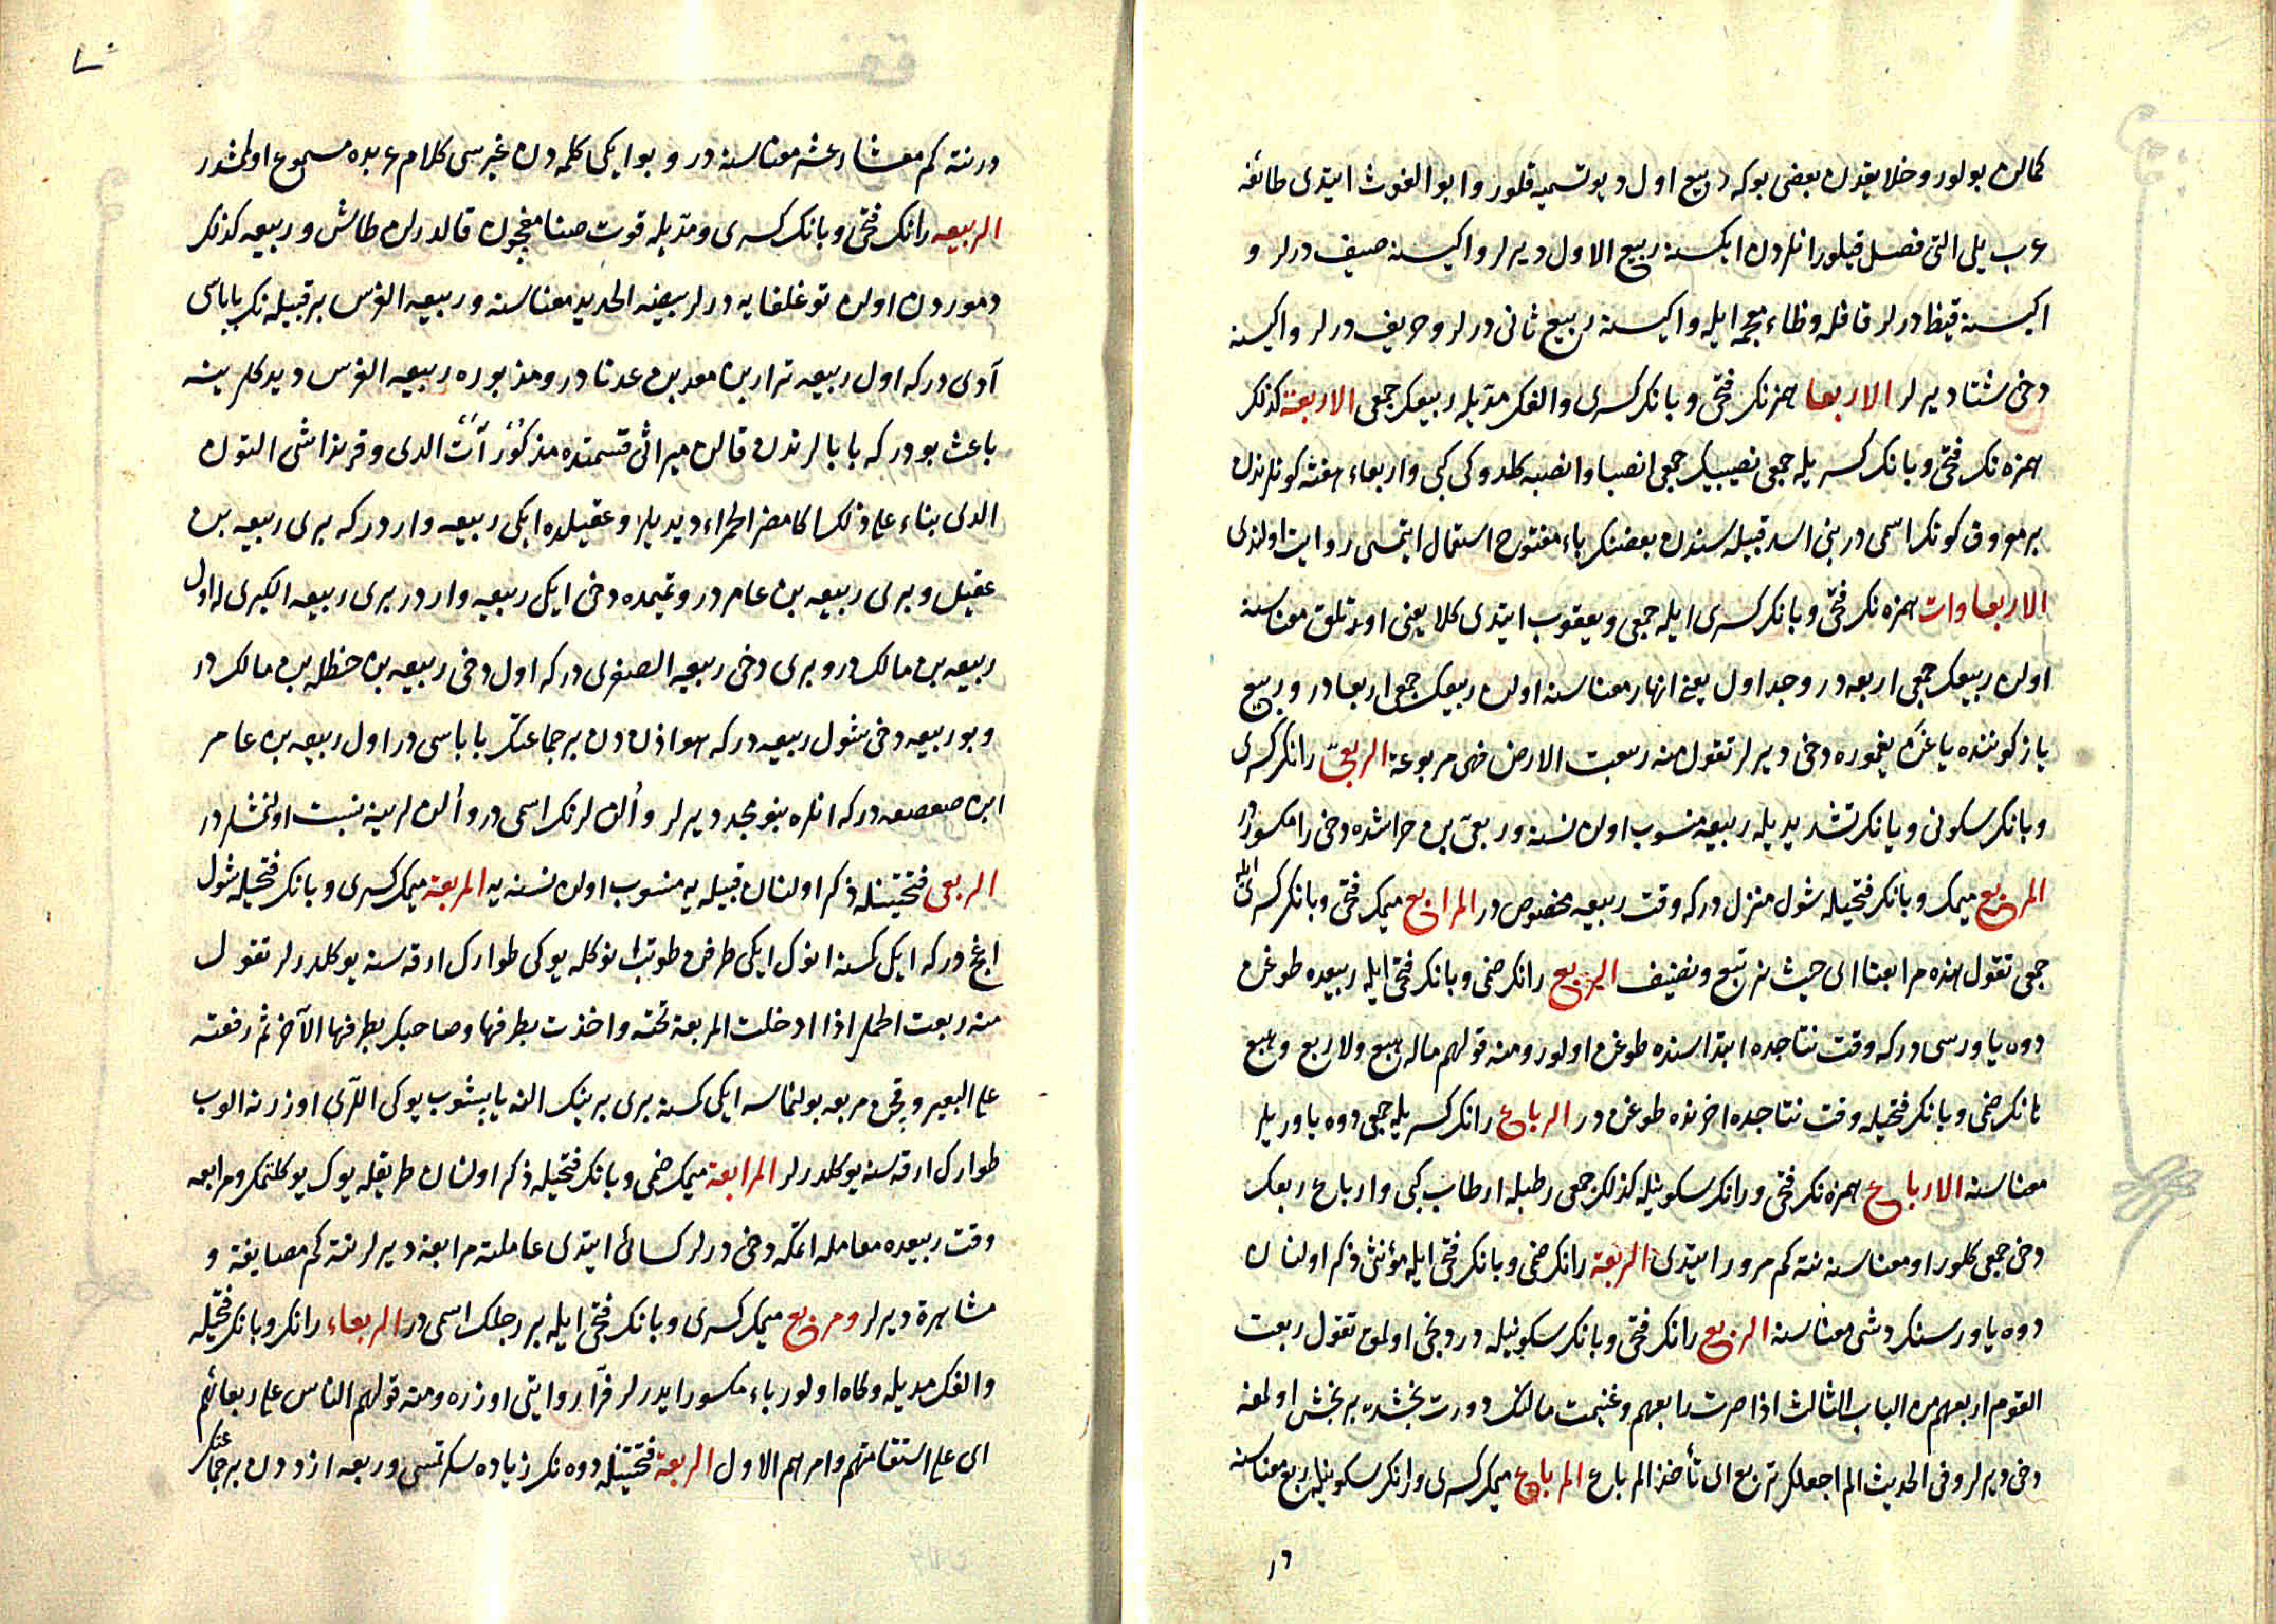 كمالن بولور و خلايقدن بعضى بوكه ربيع اول ديو تسميه قلور و ابو الغوث ايتدى طائفه
عرب يلى التى فصل قيلور انلردن ايكسنه ربيع الاول ديرلر و اكيسنه صيف درلر و
اكيسنه قيظ درلر قافله و ظاء معجمه ايله و اكيسنه ربيع ثانى درلر و خريف درلر و اكيسنه
دخى شتا ديرلر الاربعا همزنك فتحى و بانك كسرى و الفك مديله ربيعك جمعى الاربعة كذلك
همزه نك فتحى و بانك كسريله جمعى نصيبك جمعى انصبا و انصبه كلدوكى كبى و اربعاء هفته كونلرندن
بر معروف كونك اسمى در بنى اسد قبيله سندن بعضنك باء مفتوح استعمال ايتمسى روايت اولندى
الاربعاوات همزه نك فتحى و بانك كسرى ايله جمعى و يعقوب ايتدى كلا يعنى اوتلق معناسنه
اولن ربيعك جمعى اربعه در و جداول يعنى انهار معناسنه اولن ربيعك جمعى اربعا در و ربيع
ياز كوننده ياغن يغموره دخى ديرلر تقول منه ربعت الارض فهى مربوعة الربعىّ رانك كسرى
و بانك سكونى و يانك تشديديله ربيعه منسوب اولن نسنه و ربعىّ بن حراشده دخى را مكسوردر
المربع ميمك و بانك فتحيله شول منزل دركه وقت ربيعه مخصوص در المرابع ميمك فتحى و بانك كسرى ايله
جمعى تقول هذه مرابعنا اى حيث نرتبع و نصيف الربع رانك ضمى و بانك فتحى ايله ربيعده طوغن
دوه ياورسى دركه وقت نتاجده ابتداسنده طوغن اولور و منه قولهم ماله هبع ولا ربع و هبع
هانك ضمى و بانك فتحيله وقت نتاجده اخرنده طوغن در الرباع رانك كسريله جمعى دوه ياوريلر
معناسنه الارباع همزه نك فتحى و رانك سكونيله كذلك جمعى رطبله ارطاب كبى و ارباع ربعك
دخى جمعى كلور او معناسنه نته كم مرور ايتدى الربعة رانك ضمى و بانك فتحى ايله مؤنثى ذكر اولنان
دوه ياورسنك دشى معناسنه الربع رانك فتحى و بانك سكونيله دردنجى اولمق تقول ربعت
القوم اربعهم من الباب الثالث اذا صرت رابعهم و غنيمت مالنك دورت بخشده بر بخش اولمغه
دخى ديرلر و فى الحديث الم اجعلك تربع اى تأخذ المرباع المرباع ميمك كسرى و رانك سكونيله ربع معناسنه
١٦
درنته كم معشار عشر معناسنه در و بو ايكى كلمه دن غيرسى كلام عربده مسموع اولمشدر
الربيعه رانك فتحى و بانك كسرى و مديله قوت صنامغجون قالدرلن طاش و ربيعه كذلك
دموردن اولن توغلغايه درلر بيضه الحديد معناسنه و ربيعه الفرس بر قبيله نك باباسى
آدى دركه اول ربيعه نزار بن معد بن عدنا در و مذبوره ربيعه الفرس ديدكلرينه
باعث بودركه بابالرندن قالن ميراثى قسمتده مذكور آت الدى و قرنداشى التون
الدى بناء على ذلك اكا مضر الحمراء ديديلر و عقيلده ايكى ربيعه واردركه برى ربيعه بن
عقيل و برى ربيعه بن عامر در و تميمده دخى ايكى ربيعه واردر برى ربيعه الكبرى كه اول
ربيعه بن مالك در و برى دخى ربيعه الصغرى دركه اول دخى ربيعه بن حنظله بن مالك در
و بو ربيعه دخى شول ربيعه دركه هوازن دن بر جماعتك باباسى در اول ربيعه بن عامر
ابن صعصعه دركه انلره بنو مجد ديرلر و آنالرنك اسمى در و آنالرينه نسبت اولنمشلردر
الربعى فتحتينله ذكر اولنان قبيله يه منسوب اولن نسنه يه المربعة ميمك كسرى و بانك فتحيله شول
اغج دركه ايكى كسنه انوك ايكى طرفن طوتب انوكله يوكى طوارك ارقه سنه يوكلدرلر تقول
منه ربعت الحمل اذا ادخلت المربعة تحته و اخذت بطرفها و صاحبك بطرفها الآخر ثم رفعته
على البعير و قچن مربعه بولنماسه ايكى كسنه برى برينك الينه يابشوب يوكى اللرى اوزرنه الوب
طوارك ارقه سنه يوكلدرلر المرابعة ميمك ضمى و بانك فتحيله ذكر اولنان طريقله يوك يوكلتمك و مرابعه
وقت ربيعده معامله اتمكه دخى درلر كسائى ايتدى عاملته مرابعة ديرلر نته كم مصايفة و
مشاهرة ديرلر و مربع ميمك كسرى و بانك فتحى ايله بر رجلك اسمى در الربعاء رانك و بانك فتحيله
و الفك مديله و كاه اولور باء مكسور ايدرلر فرّا روايتى اوزره و منه قولهم الناس على ربعائهم
اى على استقامتهم و امرهم الاول الربعة فتحتينله دوه نك زياده سكرتمسى و ربعه ازددن بر جماعتك